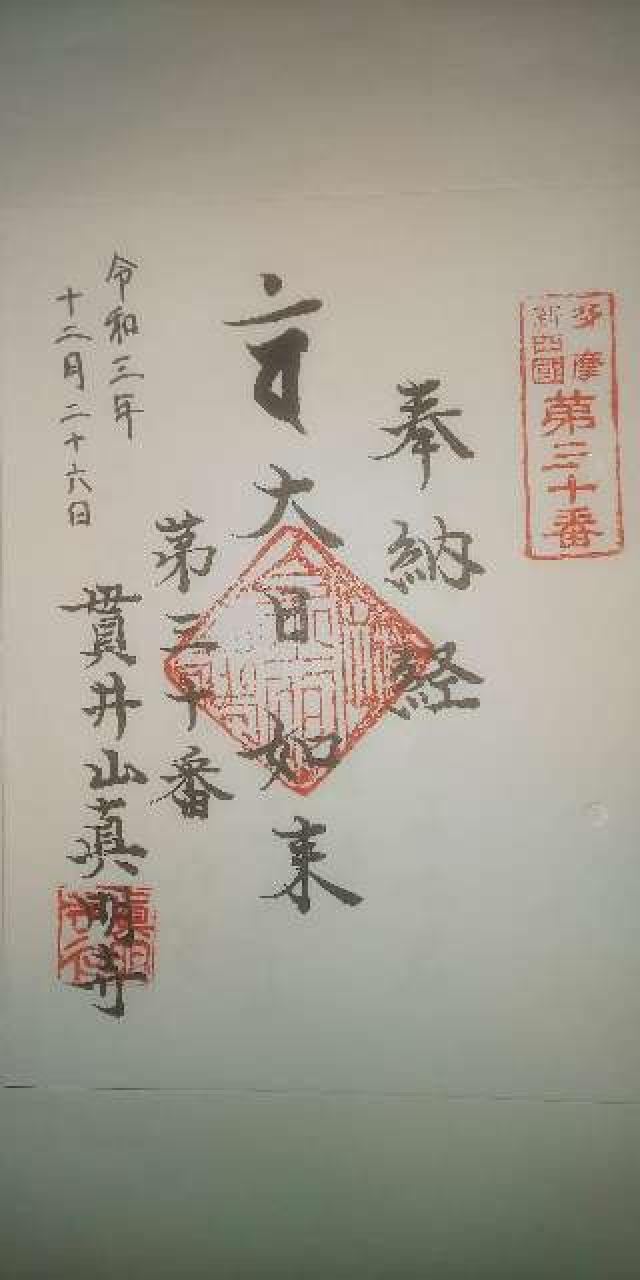 多摩
新四國
第三十番
奉納経
大日如来
第三十番
貫井山真明寺
令和三年
十二月二十六日